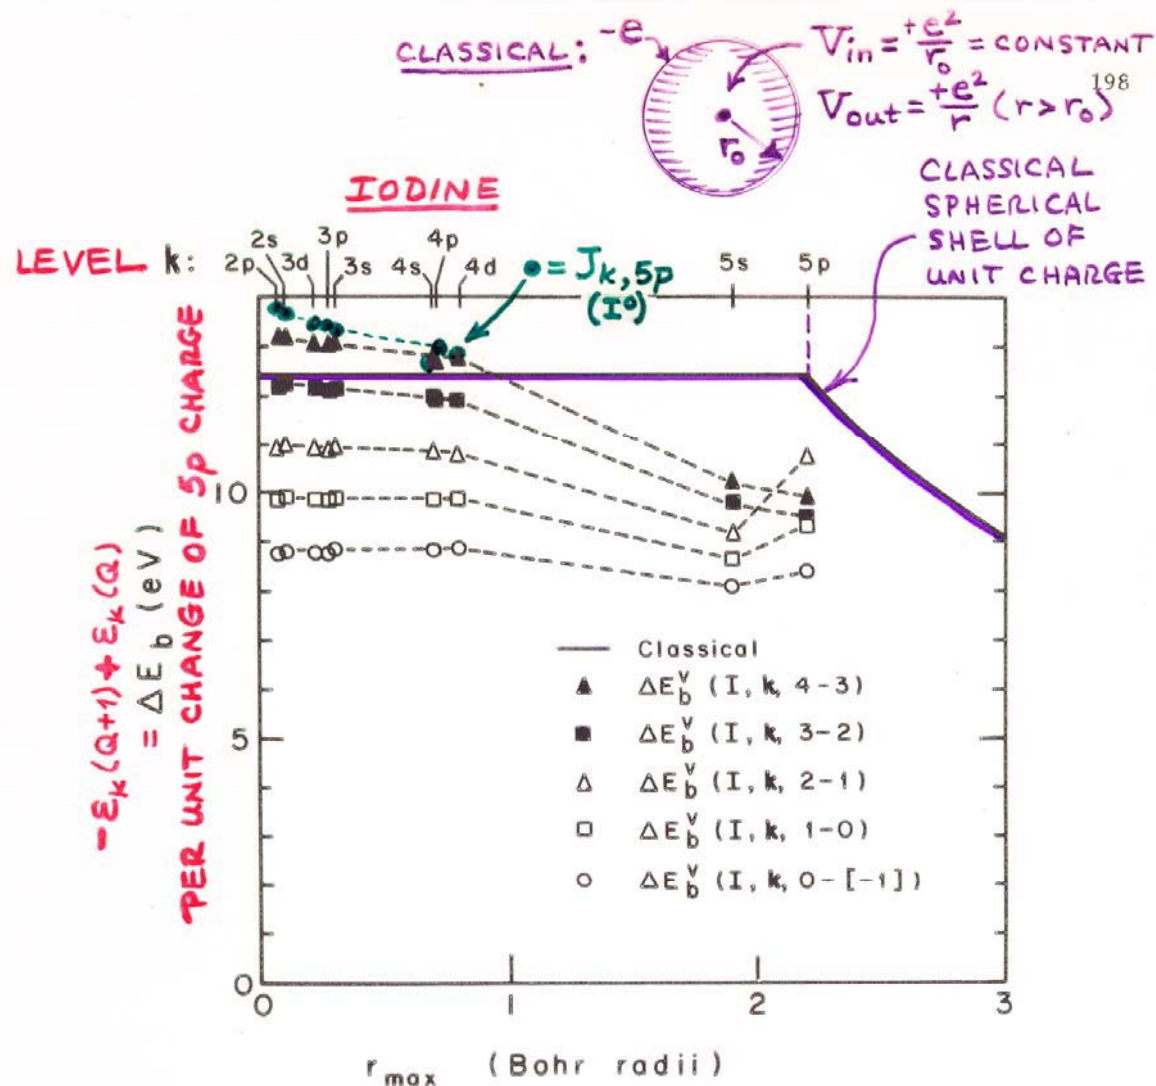 CLASSICAL: -e
V_in = +e²/r₀ = CONSTANT
198
V_out = +e²/r (r > r₀)
r₀
CLASSICAL
SPHERICAL
SHELL OF
UNIT CHARGE
IODINE
LEVEL k:
2p 2s 3d 3p 3s 4s 4p 4d 5s 5p
● = J_k,5p
(I⁰)
-ε_k(Q+1) + ε_k(Q)
= ΔE_b (eV)
PER UNIT CHANGE OF 5p CHARGE
10
5
0
Classical
▲ ΔE_b^v (I, k, 4-3)
■ ΔE_b^v (I, k, 3-2)
△ ΔE_b^v (I, k, 2-1)
□ ΔE_b^v (I, k, 1-0)
○ ΔE_b^v (I, k, 0-[-1])
0 1 2 3
r_max (Bohr radii)